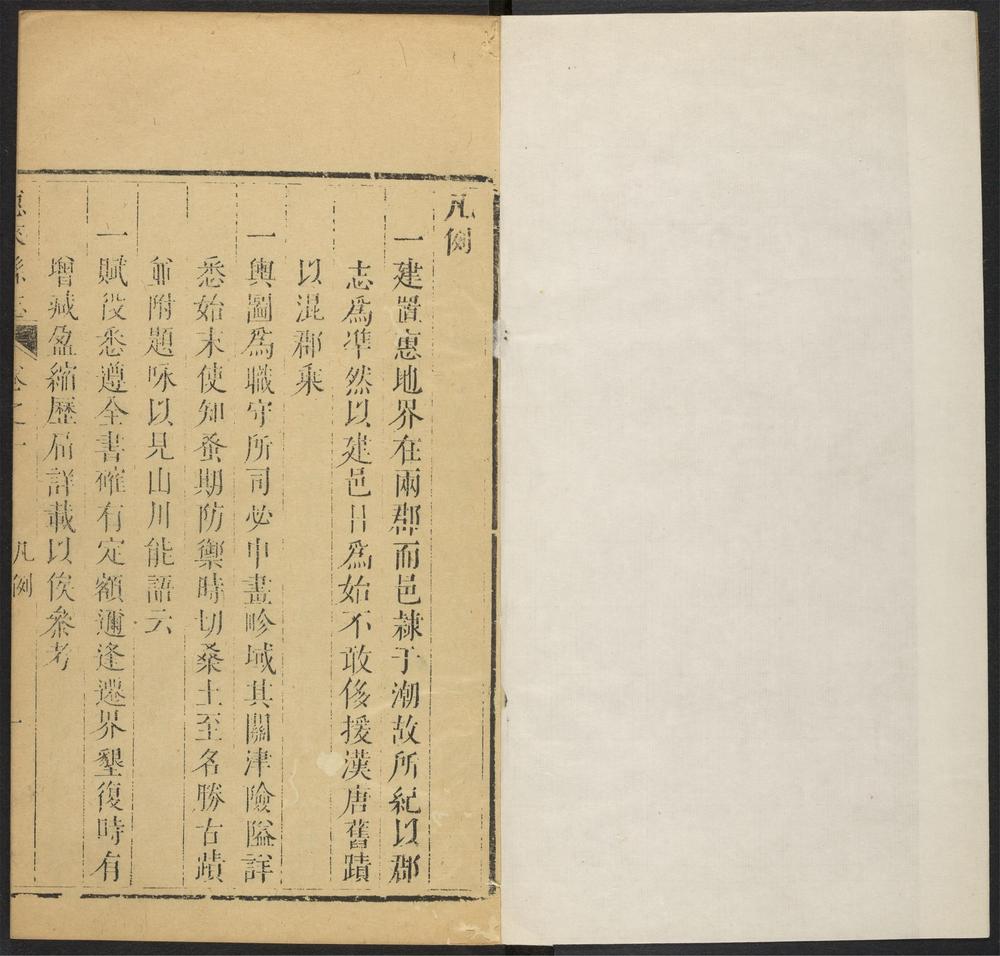 凡例
一建置惠地界在兩郡而邑隷于潮故所紀以郡
志爲凖然以建邑日爲始不敢侈援漢唐舊蹟
以混郡乘
一輿圖爲職守所司必申畫畛域其關津險隘詳
悉始末使知蚤期防禦時切桑土至名勝古蹟
並附題咏以見山川能語云
一賦役悉遵全書確有定額邇逢遷界墾復時有
增减盈縮歷屆詳載以俟叅考
惠來縣志 卷之一 凡例 一